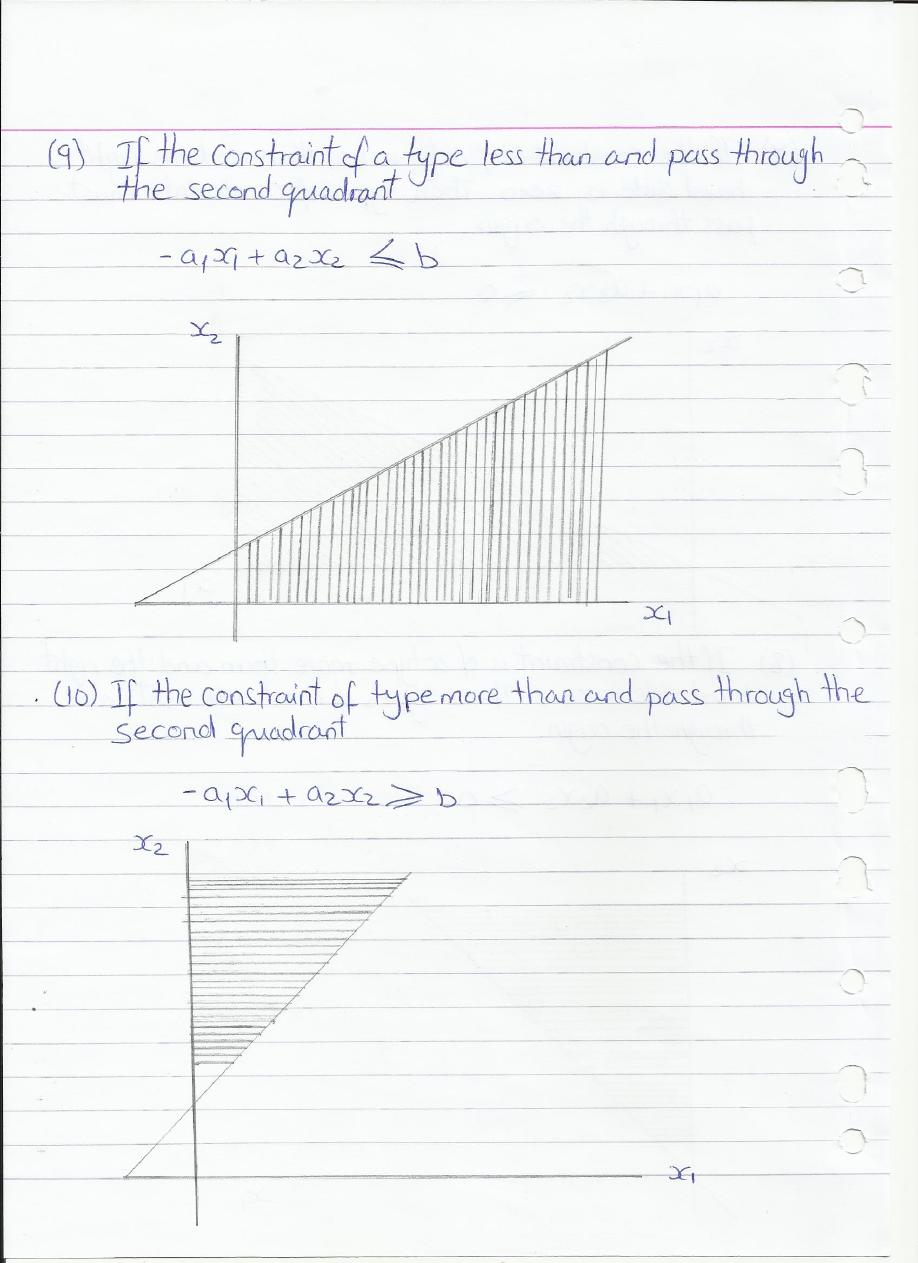 (9) If the constraint of a type less than and pass through
the second quadrant
-a₁x₁ + a₂x₂ ≤ b
x₂
x₁
(10) If the constraint of type more than and pass through the
second quadrant
-a₁x₁ + a₂x₂ ≥ b
x₂
x₁